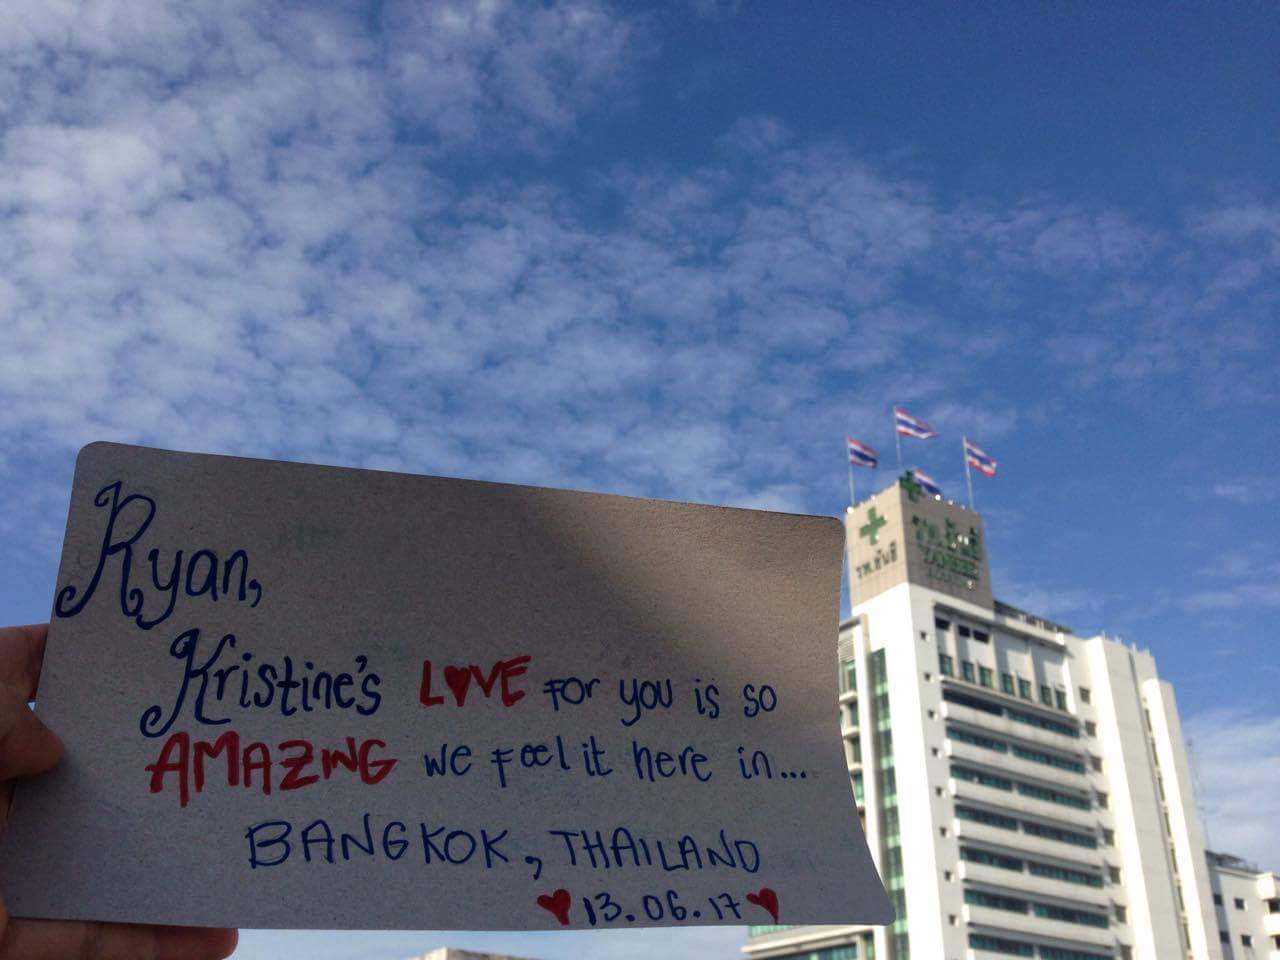 Ryan,
Kristine's LOVE FOR you is so
AMAZING we feel it here in...
BANGKOK, THAILAND
13.06.17
รพ.ยันฮี
รพ.ยันฮี
YANHEE